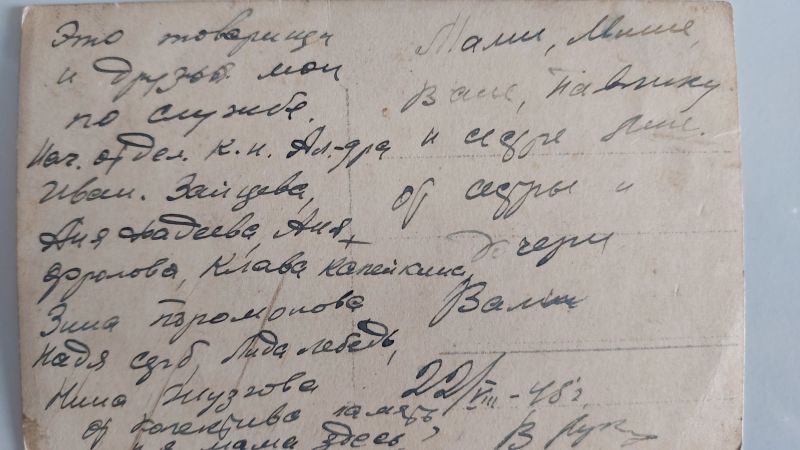 Это товарищи
и друзья мои
по службе.
Нач. отдел. к.н. Ал-дра
Иван. Зайцева,
Аня Фадеева, Аня
Фролова, Клава Капейкина,
Зина Парамонова
Надя серб, Лида лебедь,
Нина
от колектива память
мама здесь,
Мами, Мише,
Ване, Павлику
и сестре
от сестры и
дочери
Вали
22/VIII-48г
В